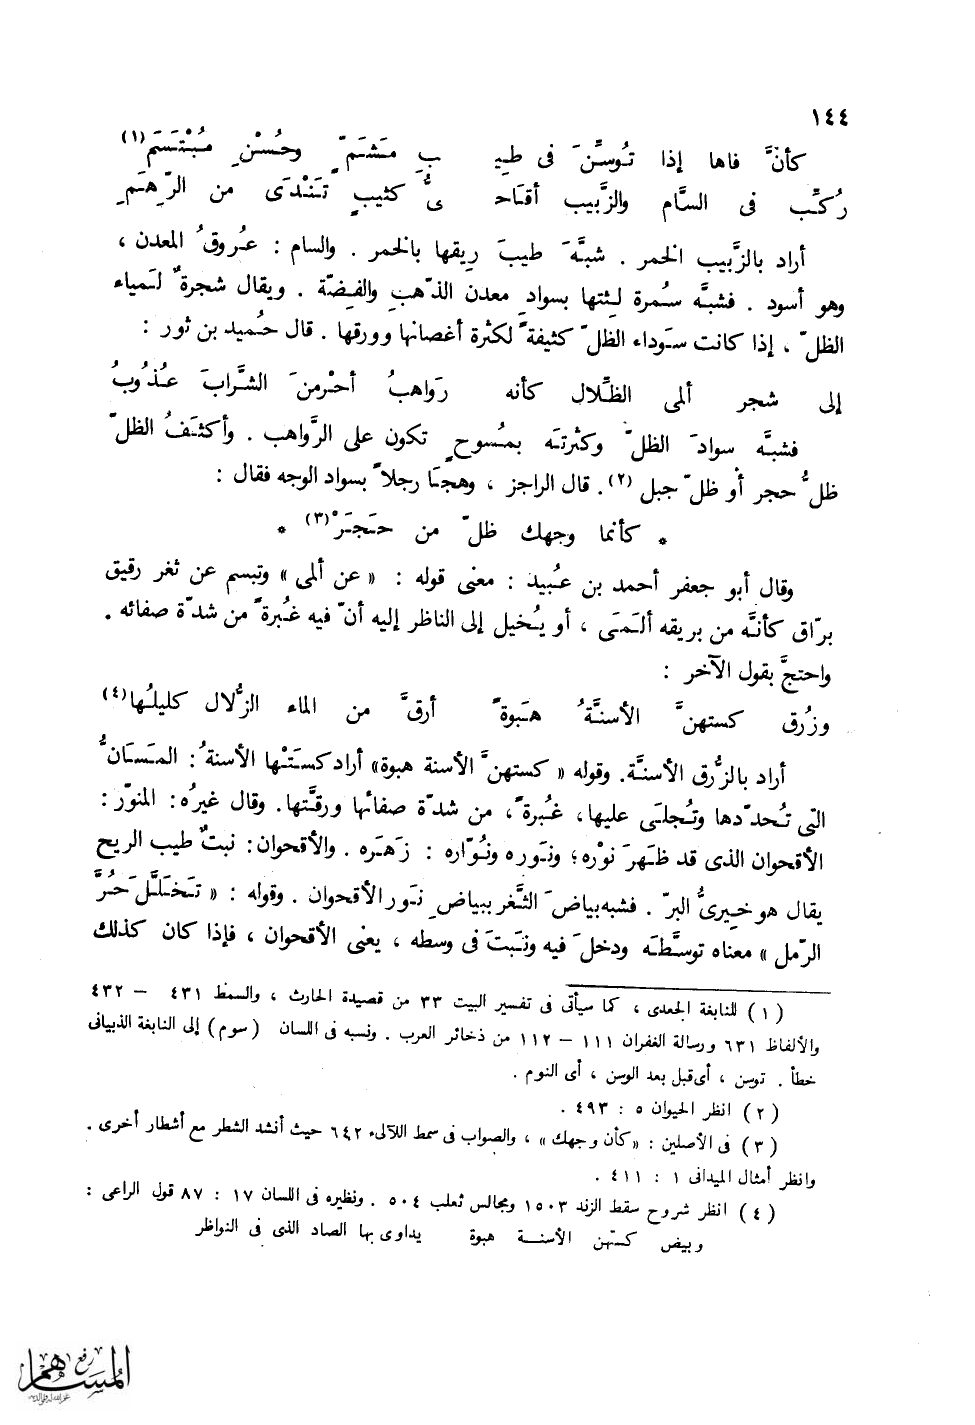 ١٤٤
كأنَّ فاها إذا تُوسِّنَ فى طِيـ ـبِ مَشَمٍّ وحُسْنِ مُبْتَسَمِ(١)
رُكِّب فى السَّام والزَّبيب أقاحـ ىُّ كثيبٍ تَنْدَى من الرِّهَمِ
أراد بالزَّبيب الخمر . شبَّهَ طيبَ رِيقها بالخمر . والسام : عُروقُ المعدن ،
وهو أسود . فشبَّه سُمرة لِثتها بسوادِ معدن الذّهبِ والفِضّة . ويقال شجرةٌ لَمياء
الظلّ ، إذا كانت سَوداء الظلّ كثيفةً لكثرة أغصانها وورقها . قال حُميد بن ثور :
إلى شجر ألمى الظِّلال كأنه رَواهبُ أحْرمنَ الشَّرابَ عُذُوبُ
فشبَّه سوادَ الظلّ وكثرتَه بمُسوحٍ تكون على الرَّواهب . وأكثفُ الظلّ
ظلُّ حجر أو ظلّ جبل (٢). قال الراجز ، وهجا رجلاً بسواد الوجه فقال :
* كأنما وجهك ظلّ من حَجَرْ(٣) *
وقال أبو جعفر أحمد بن عُبيد : معنى قوله : « عن ألمى » وتبسم عن ثغر رقيق
برّاق كأنَّه من بريقه ألمَى ، أو يُخيل إلى الناظر إليه أنّ فيه غُبرةً من شدّة صفائه .
واحتجَّ بقول الآخر :
وزُرق كستهنَّ الأسنَّةُ هَبوةً أرقَّ من الماء الزُّلال كليلُها(٤)
أراد بالزُّرق الأسنَّة. وقوله « كستهنَّ الأسنة هبوة» أراد كسَتْها الأسنةُ: المَسَانُّ
التى تُحدّدها وتُجلَى عليها، غُبرةً، من شدّة صفائها ورقَّتها. وقال غيرُه: المنوّر:
الأقحوان الذى قد ظَهرَ نوْره؛ ونَوره ونُوّاره : زَهَره . والأقحوان: نبتٌ طيب الريح
يقال هو خِيرىُّ البرّ . فشبه بياضَ الثَّغر ببياضِ نَور الأقحوان . وقوله : « تَخَلَّلَ حُرَّ
الرّمل » معناه توسَّطَه ودخلَ فيه ونَبتَ فى وسطه ، يعنى الأقحوان ، فإذا كان كذلك
(١) للنابغة الجعدى ، كما سيأتى فى تفسير البيت ٣٣ من قصيدة الحارث ، والسمط ٤٣١ – ٤٣٢
والألفاظ ٦٣١ ورسالة الغفران ١١١ – ١١٢ من ذخائر العرب . ونسبه فى اللسان (سوم) إلى النابغة الذبيانى
خطأ . توسن ، أى قبل بعد الوسن ، أى النوم .
(٢) انظر الحيوان ٥ : ٤٩٣ .
(٣) فى الأصلين : «كأن وجهك» ، والصواب فى سمط اللآلىء ٦٤٢ حيث أنشد الشطر مع أشطار أخرى .
وانظر أمثال الميدانى ١ : ٤١١ .
(٤) انظر شروح سقط الزند ١٥٠٣ ومجالس ثعلب ٥٠٤ . ونظيره فى اللسان ١٧ : ٨٧ قول الراعى :
وبيض كستهن الأسنة هبوة يداوى بها الصاد الذى فى النواظر
رفع
المساهم